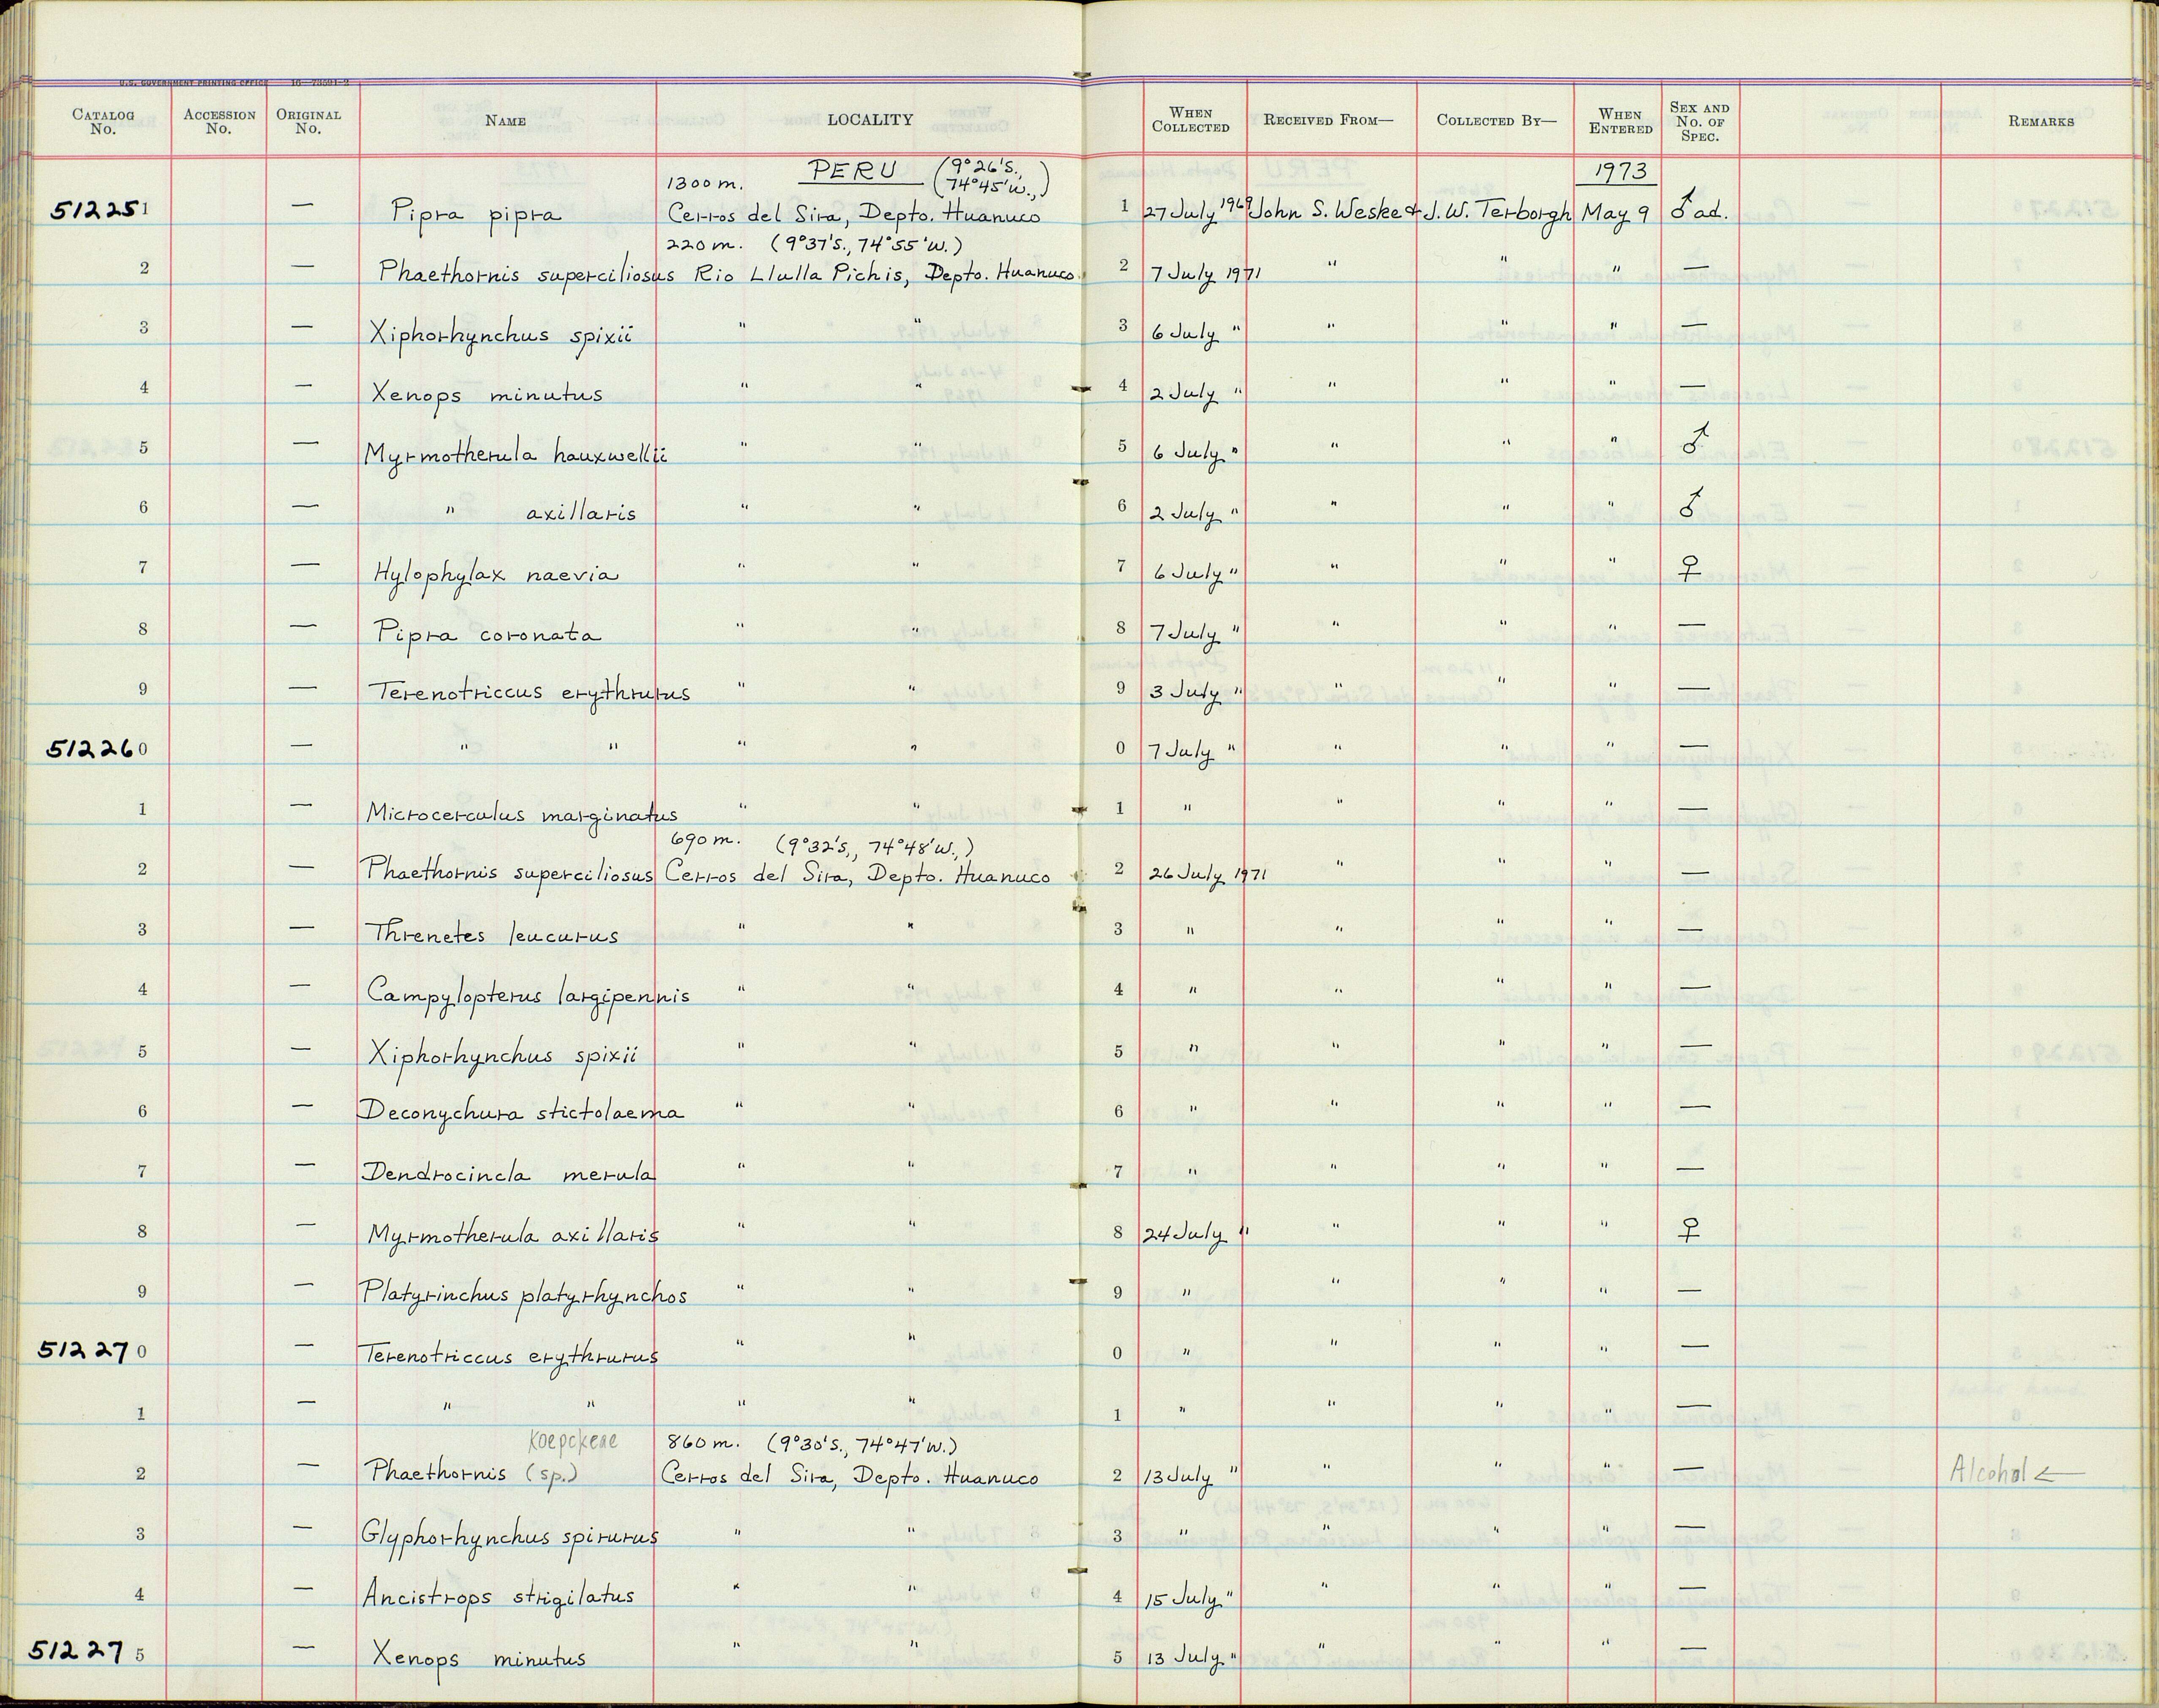 U.S. GOVERNMENT PRINTING OFFICE 16—73081-2
CATALOG No. ACCESSION No. ORIGINAL No. NAME LOCALITY WHEN COLLECTED RECEIVED FROM— COLLECTED BY— WHEN ENTERED SEX AND No. OF SPEC. REMARKS
1300 m. PERU (9°26'S., 74°45'W.,) 1973
512251 — Pipra pipra Cerros del Sira, Depto. Huanuco 1 27 July 1969 John S. Weske & J.W. Terborgh May 9 ♂ ad.
220 m. (9°37'S., 74°55'W.)
2 — Phaethornis superciliosus Rio Llulla Pichis, Depto. Huanuco 2 7 July 1971 " " " —
3 — Xiphorhynchus spixii " " 3 6 July " " " " —
4 — Xenops minutus " " 4 2 July " " " " —
5 — Myrmotherula hauxwellii " " 5 6 July " " " " ♂
6 — " axillaris " " 6 2 July " " " " ♂
7 — Hylophylax naevia " " 7 6 July " " " " ♀
8 — Pipra coronata " " 8 7 July " " " " —
9 — Terenotriccus erythrurus " " 9 3 July " " " " —
512260 — " " " " 0 7 July " " " " —
1 — Microcerculus marginatus " " 1 " " " " —
690 m. (9°32'S., 74°48'W.,)
2 — Phaethornis superciliosus Cerros del Sira, Depto. Huanuco 2 26 July 1971 " " " —
3 — Threnetes leucurus " " 3 " " " " —
4 — Campylopterus largipennis " " 4 " " " " —
5 — Xiphorhynchus spixii " " 5 " " " " —
6 — Deconychura stictolaema " " 6 " " " " —
7 — Dendrocincla merula " " 7 " " " " —
8 — Myrmotherula axillaris " " 8 24 July " " " " ♀
9 — Platyrinchus platyrhynchos " " 9 " " " " —
512270 — Terenotriccus erythrurus " " 0 " " " " —
1 — " " " " 1 " " " " —
Koepckeae 860 m. (9°30'S., 74°47'W.)
2 — Phaethornis (sp.) Cerros del Sira, Depto. Huanuco 2 13 July " " " " — Alcohol ←
3 — Glyphorhynchus spirurus " " 3 " " " " —
4 — Ancistrops strigilatus " " 4 15 July " " " " —
512275 — Xenops minutus " " 5 13 July " " " " —